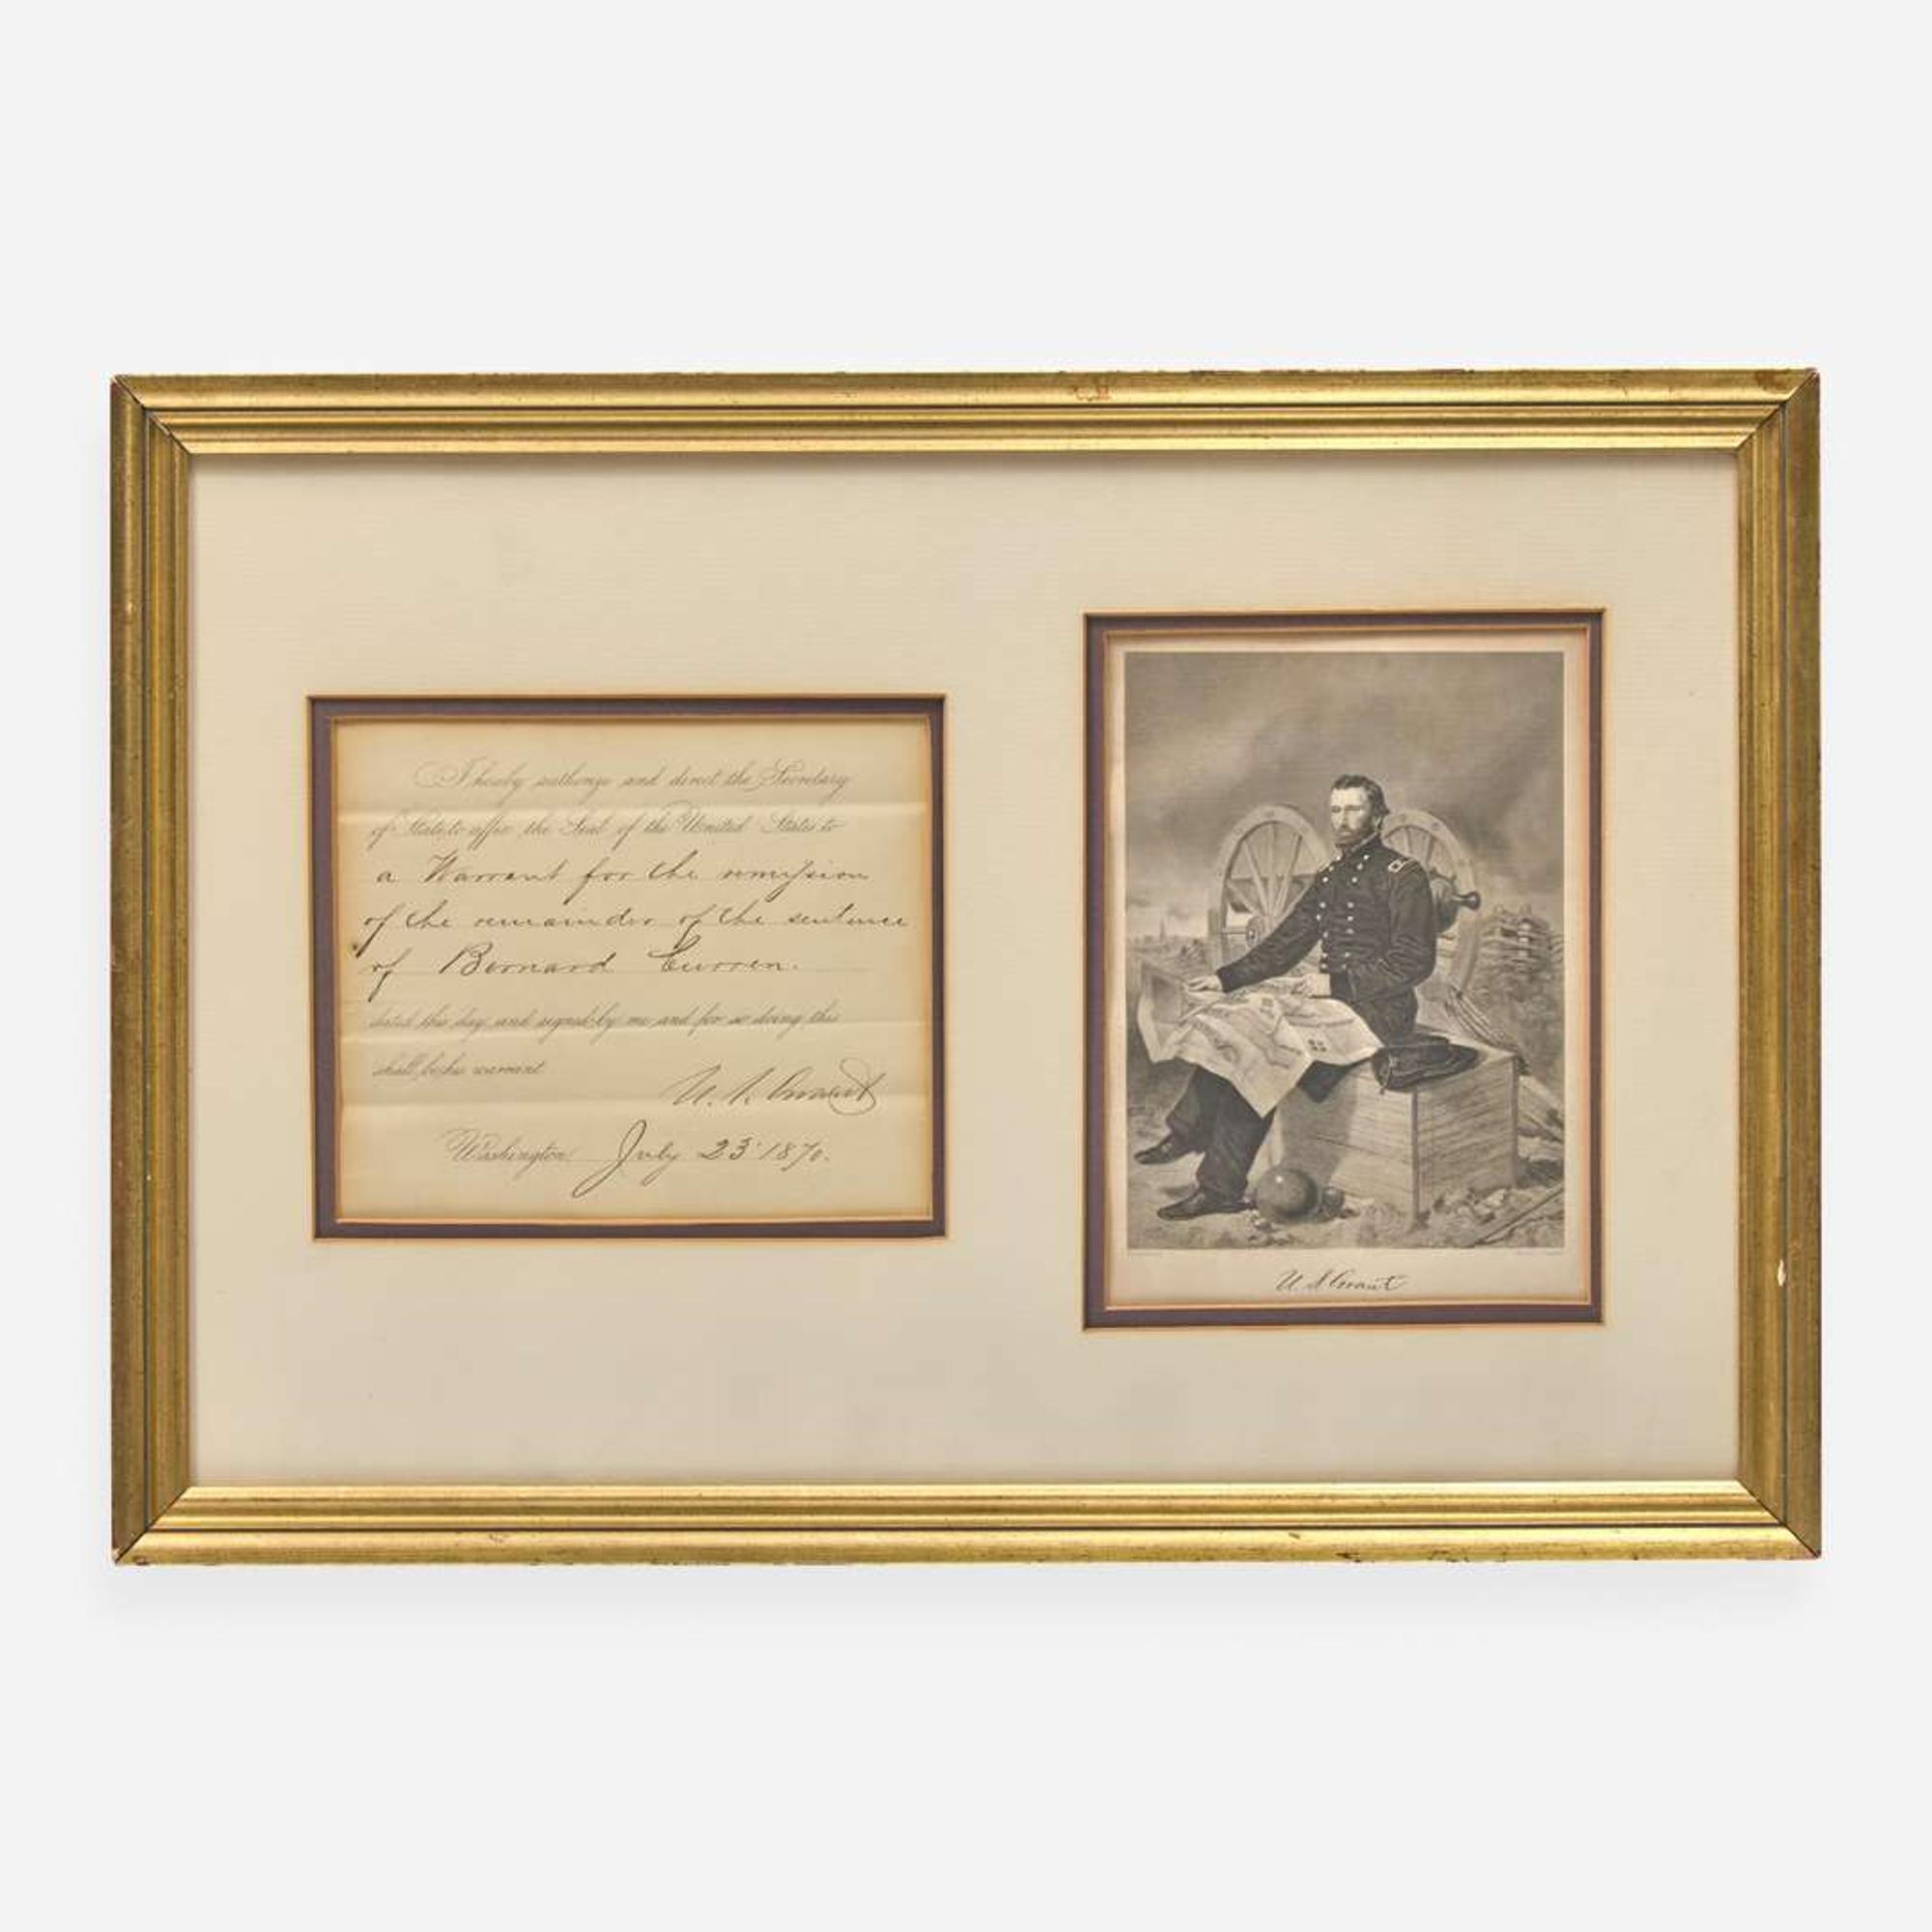 I hereby authorize and direct the Secretary
of State to affix the Seal of the United States to
a Warrant for the remission
of the remainder of the sentence
of Bernard Curren.
dated this day and signed by me and for so doing this
shall be his warrant
U. S. Grant
Washington July 23 1870.
U. S. Grant